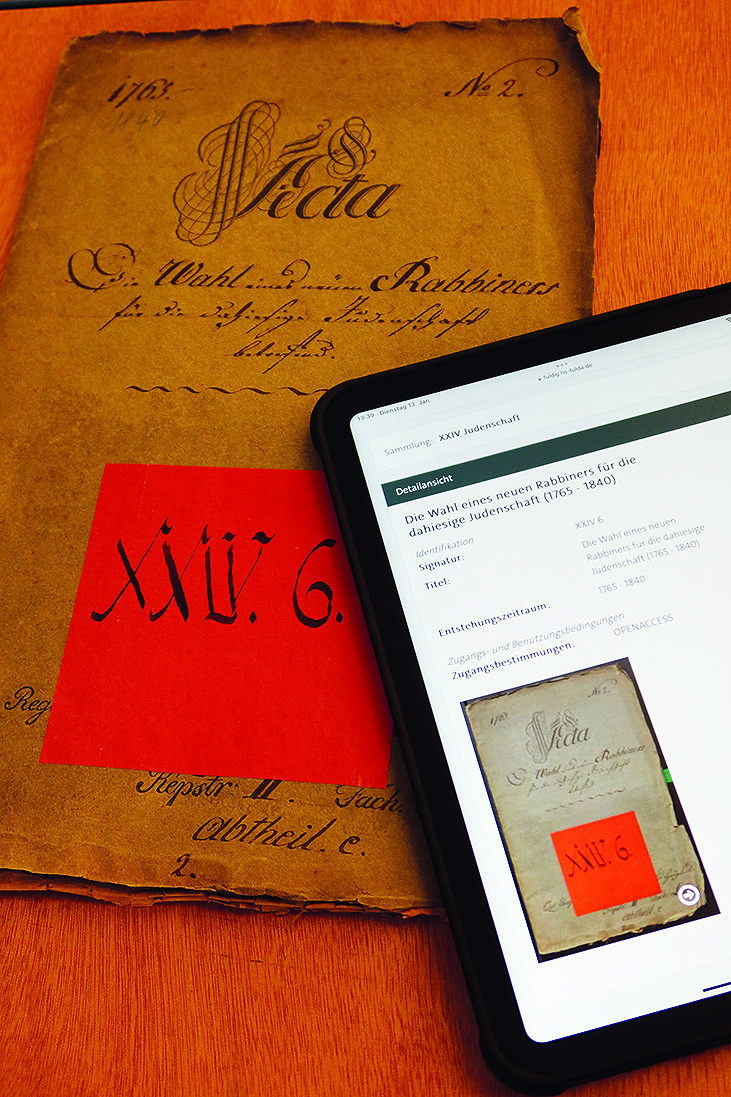 1765.
1840
No 2.
Acta
Die Wahl eines neuen Rabbiners
für die dahiesige Judenschaft
betrefend.
XXIV. 6.
Reg
Repstr: II. Fach.
Abtheil. c.
2.
13:39 Dienstag 13. Jan
fuldig.hs-fulda.de
Sammlung: XXIV Judenschaft
Detailansicht
Die Wahl eines neuen Rabbiners für die
dahiesige Judenschaft (1765 - 1840)
Identifikation
Signatur: XXIV 6
Titel: Die Wahl eines neuen
Rabbiners für die dahiesige
Judenschaft (1765 - 1840)
Entstehungszeitraum: 1765 - 1840
Zugangs- und Benutzungsbedingungen
Zugangsbestimmungen: OPENACCESS
1765.
No 2.
Acta
Die Wahl eines neuen Rabbiners
für die dahiesige Judenschaft
XXIV. 6.
Repstr: II
Abtheil. c.
2.